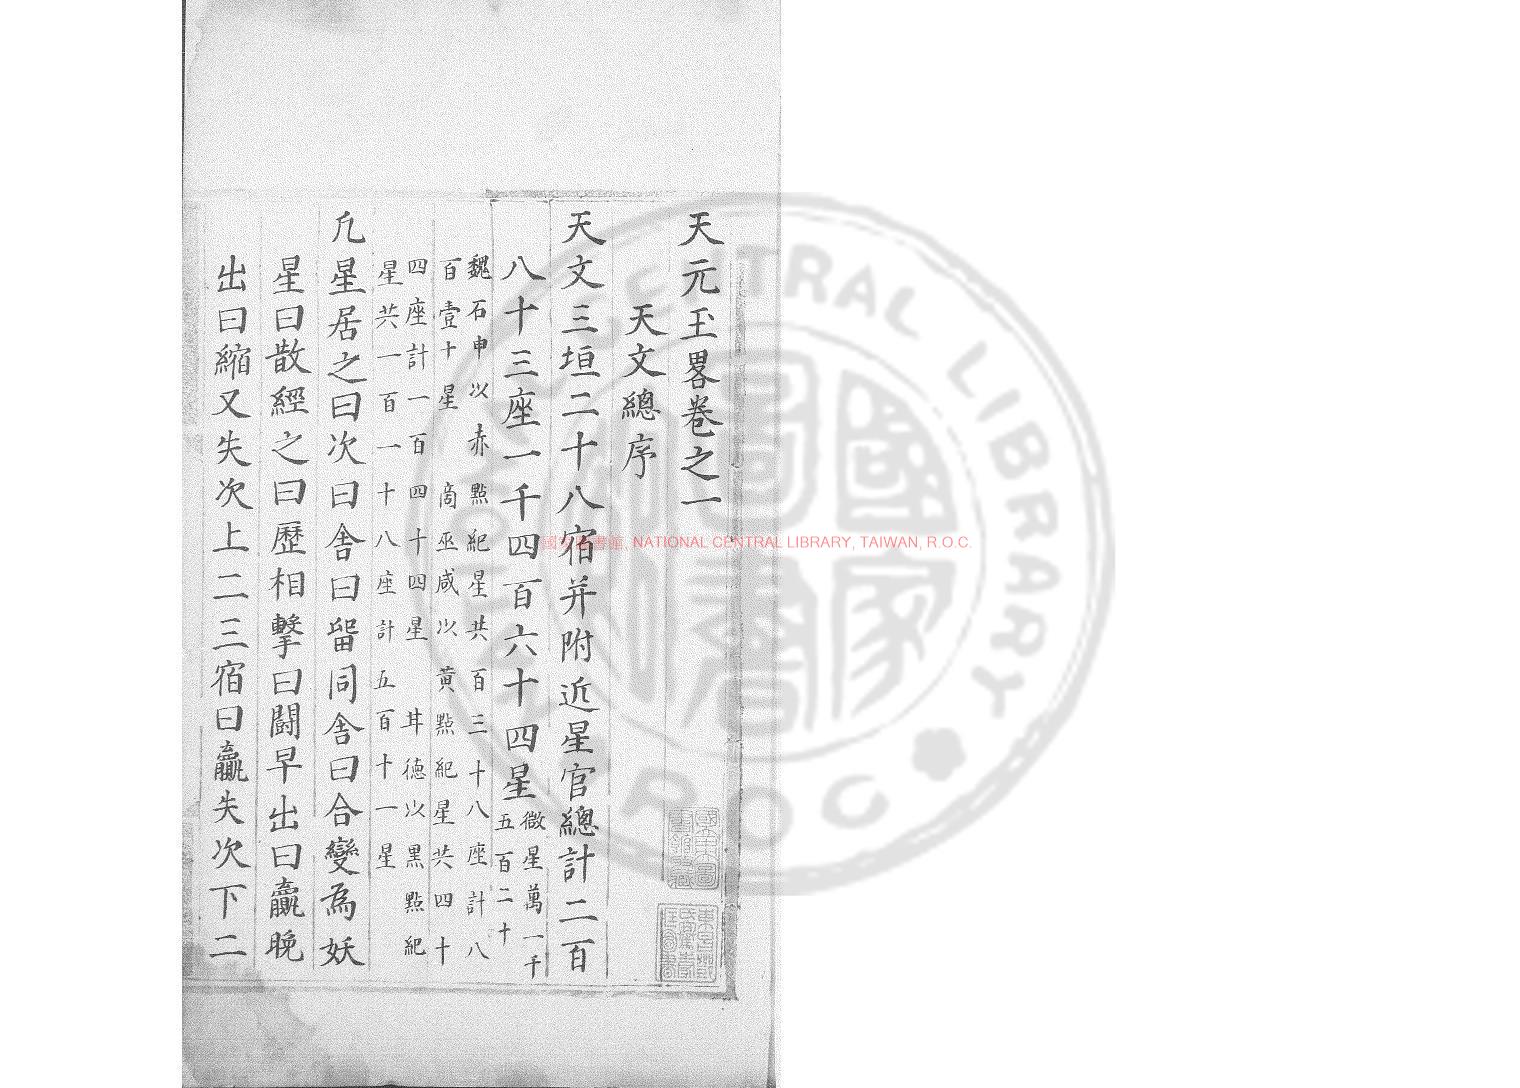 天元玉畧卷之一
天文總序
天文三垣二十八宿并附近星官總計二百
八十三座一千四百六十四星微星萬一千五百二十
魏石申以赤點紀星共百三十八座計八
百壹十星 商巫咸以黃點紀星共四十
四座計一百四十四星 甘德以黑點紀
星共一百一十八座計五百十一星
凡星居之曰次曰舍曰留同舍曰合變為妖
星曰散經之曰歷相擊曰鬪早出曰贏晚
出曰縮又失次上二三宿曰贏失次下二
國家圖書館, NATIONAL CENTRAL LIBRARY, TAIWAN, R.O.C.
NATIONAL CENTRAL LIBRARY
R O C
國家圖書館